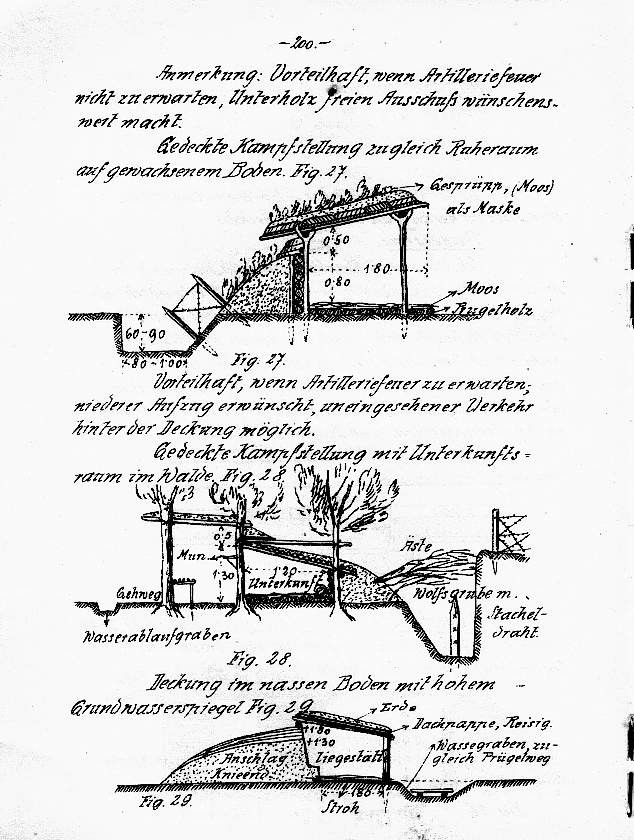 -200.-
Anmerkung: Vorteilhaft, wenn Artilleriefeuer
nicht zu erwarten, Unterholz freien Ausschuß wünschens-
wert macht.
Gedeckte Kampfstellung zugleich Ruheraum
auf gewachsenem Boden. Fig. 27.
Gesprüpp, (Moos)
als Maske
0·50
1·80
0·80
Moos
Prügelholz
60-90
80-1·00
Fig. 27.
Vorteilhaft, wenn Artilleriefeuer zu erwarten,
niederer Aufzug erwünscht, uneingesehener Verkehr
hinter der Deckung möglich.
Gedeckte Kampfstellung mit Unterkunfts=
raum im Walde. Fig. 28
0·5
Äste
Mun.
1·20
1·30
Unterkunft
Gehweg
Wolfsgrube m.
Stachel-
draht.
Wasserablaufgraben
Fig. 28.
Deckung im nassen Boden mit hohem
Grundwasserspiegel Fig. 29
Erde
Dachpappe, Reisig.
+1·80
+1·30
Wassegraben, zu-
gleich Prügelweg
Anschlag
Knieend
Liegestatt
1·80
Fig. 29.
Stroh